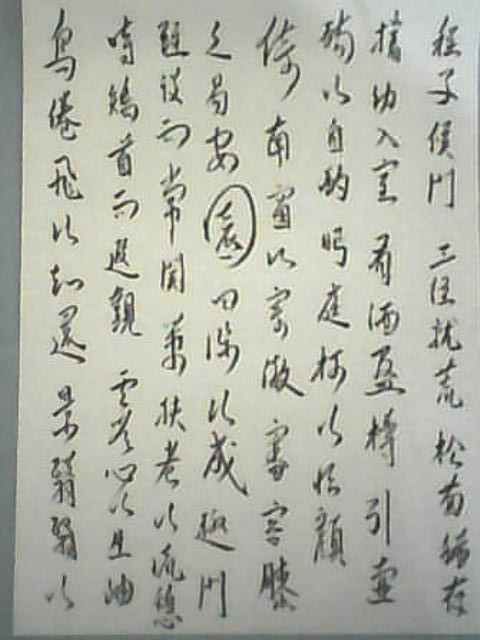 稚子候門 三徑就荒 松菊猶存
攜幼入室 有酒盈樽 引壺
觴以自酌 眄庭柯以怡顏
倚南窗以寄傲 審容膝
之易安 園日涉以成趣 門
雖設而常關 策扶老以流憩
時矯首而遐觀 雲無心以出岫
鳥倦飛而知還 景翳翳以